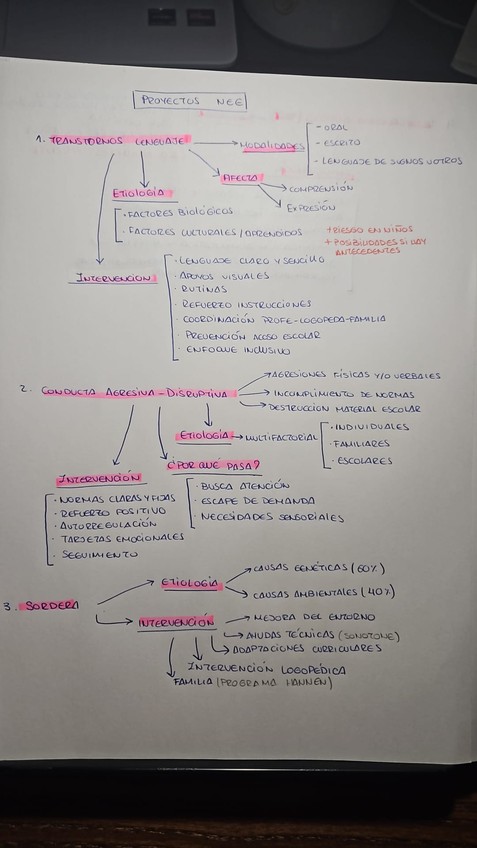 PROYECTOS NEE
1. TRANSTORNOS LENGUAJE → MODALIDADES
- ORAL
- ESCRITO
- LENGUAJE DE SIGNOS U OTROS
AFECTA
COMPRENSIÓN
EXPRESIÓN
ETIOLOGÍA
· FACTORES BIOLÓGICOS
· FACTORES CULTURALES/APRENDIDOS
+ RIESGO EN NIÑOS
+ POSIBILIDADES SI HAY
ANTECEDENTES
INTERVENCIÓN
· LENGUAJE CLARO Y SENCILLO
· APOYOS VISUALES
· RUTINAS
· REFUERZO INSTRUCCIONES
· COORDINACIÓN PROFE-LOGOPEDA-FAMILIA
· PREVENCIÓN ACOSO ESCOLAR
· ENFOQUE INCLUSIVO
2. CONDUCTA AGRESIVA-DISRUPTIVA
→ AGRESIONES FÍSICAS Y/O VERBALES
→ INCUMPLIMIENTO DE NORMAS
→ DESTRUCCIÓN MATERIAL ESCOLAR
ETIOLOGÍA → MULTIFACTORIAL
· INDIVIDUALES
· FAMILIARES
· ESCOLARES
¿POR QUÉ PASA?
· BUSCA ATENCIÓN
· ESCAPE DE DEMANDA
· NECESIDADES SENSORIALES
INTERVENCIÓN
· NORMAS CLARAS Y FIJAS
· REFUERZO POSITIVO
· AUTORREGULACIÓN
· TARJETAS EMOCIONALES
· SEGUIMIENTO
3. SORDERA
ETIOLOGÍA
→ CAUSAS GENÉTICAS (60%)
→ CAUSAS AMBIENTALES (40%)
INTERVENCIÓN
→ MEJORA DEL ENTORNO
→ AYUDAS TÉCNICAS (SONOTONE)
→ ADAPTACIONES CURRICULARES
INTERVENCIÓN LOGOPÉDICA
FAMILIA (PROGRAMA HANNEN)